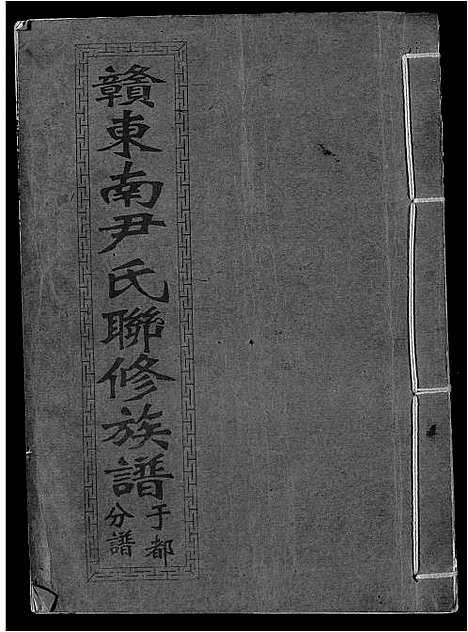 贛東南尹氏聯修族譜
于都
分譜